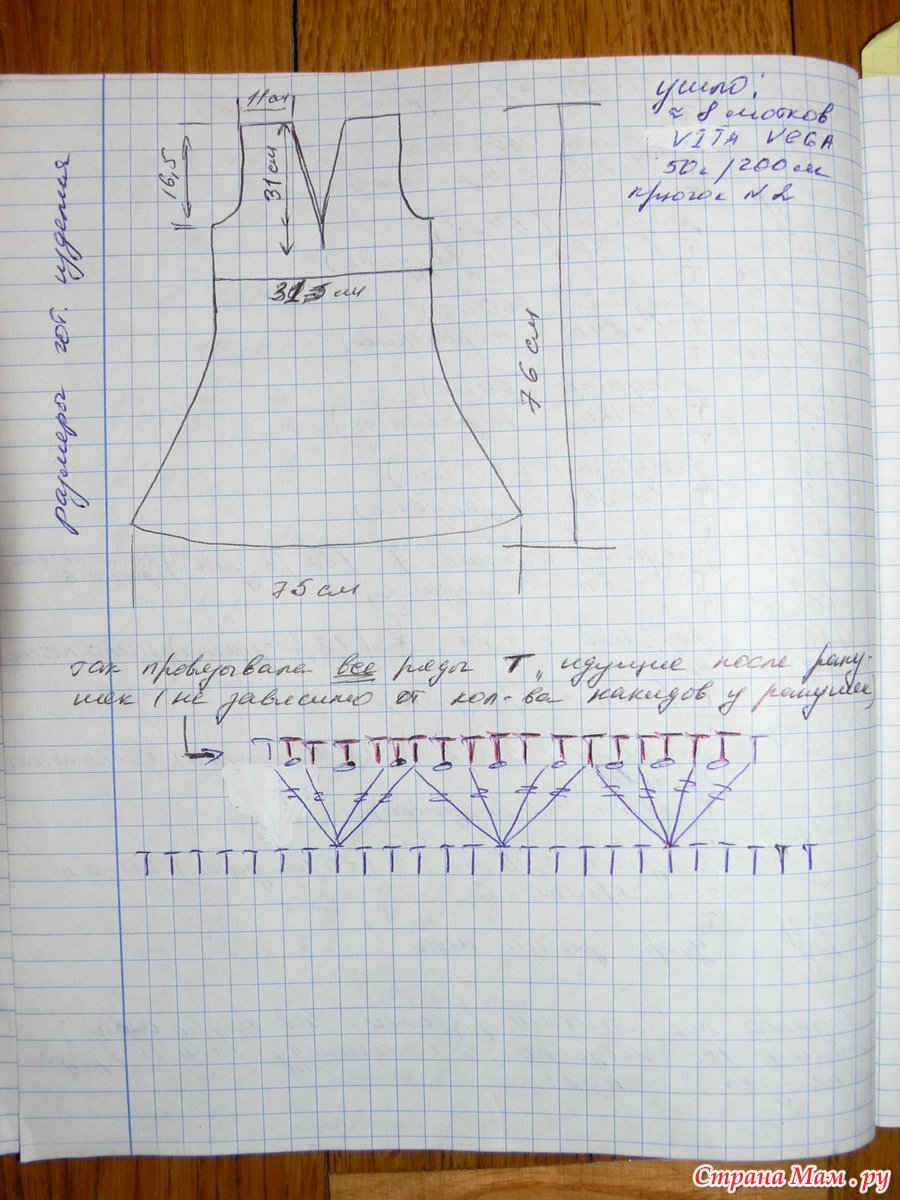 ушло:
≈ 8 мотков
VITA VEGA
50г/200м
крючок N 2
размеры гот. изделия
11см
16,5
31см
31,5 см
76 см
75 см
так провязывала все ряды Т, идущие после раку-
шек (не зависимо от кол-ва накидов у ракушек)
Страна Мам.ру